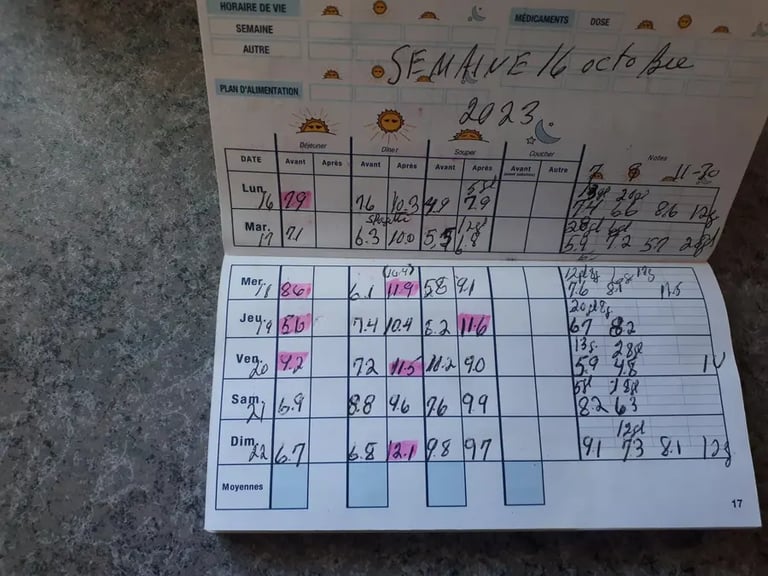 HORAIRE DE VIE
MÉDICAMENTS DOSE
SEMAINE
AUTRE
SEMAINE 16 octobre
PLAN D'ALIMENTATION
2023
Déjeuner Dîner Souper Coucher Notes
DATE Avant Après Avant Après Avant Après Avant Autre 7 9 11-30
Lun. 16 7.9 7.6 10.3 4.9 7.9 7.4 6.6 8.6 12g
Mar. 17 7.1 6.3 10.0 5.5 6.8 5.9 7.2 5.7
Mer. 18 8.6 6.1 11.9 5.8 9.1 7.6 11.5
Jeu. 19 5.6 7.4 10.4 5.2 11.6 6.7 8.2
13g 28g
Ven. 20 4.2 7.2 11.5 11.2 9.0 5.9 4.8
Sam. 21 6.9 8.8 9.6 7.6 9.9 8.2 6.3
Dim. 22 6.7 6.8 12.1 9.8 9.7 9.1 7.3 8.1 12g
Moyennes
17